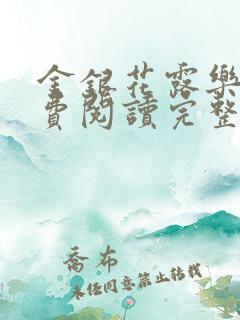 金銀花露樂
費閱讀完整
喬布
未經同意禁止轉載